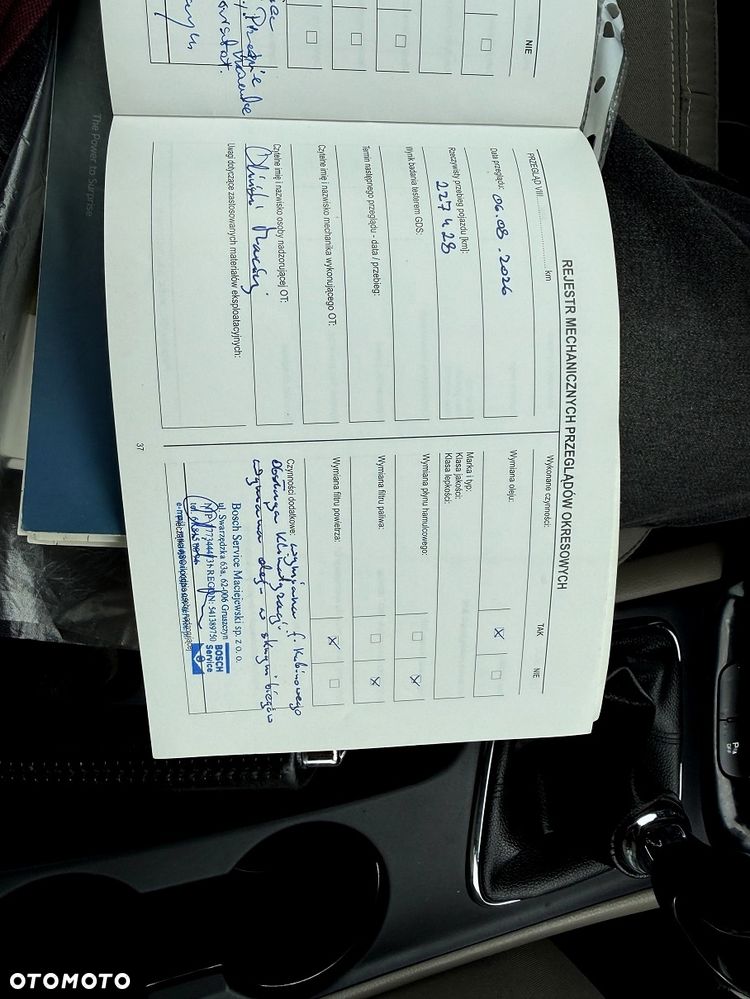 NIE
The Power to Surprise
REJESTR MECHANICZNYCH PRZEGLĄDÓW OKRESOWYCH
PRZEGLĄD VIII ........................ km
Data przeglądu: 06.08.2026
Rzeczywisty przebieg pojazdu [km]:
227428
Wynik badania testerem GDS:
Termin następnego przeglądu - data / przebieg:
Czytelne imię i nazwisko mechanika wykonującego OT:
Czytelne imię i nazwisko osoby nadzorującej OT:
Maciej
Uwagi dotyczące zastosowanych materiałów eksploatacyjnych:
37
Wykonane czynności: TAK NIE
Wymiana oleju:
Marka i typ:
Klasa jakości:
Klasa lepkości:
Wymiana płynu hamulcowego:
Wymiana filtru paliwa:
Wymiana filtru powietrza:
Czynności dodatkowe: wymiana f. Kabinowego
Obsługa Klimatyzacji
wymiana oleju w skrzyni biegów
Bosch Service Maciejewski sp. z o.o.
ul. Swarzędzka 63a, 62-006 Gruszczyn
BOSCH
Service
P
OFF
OTOMOTO